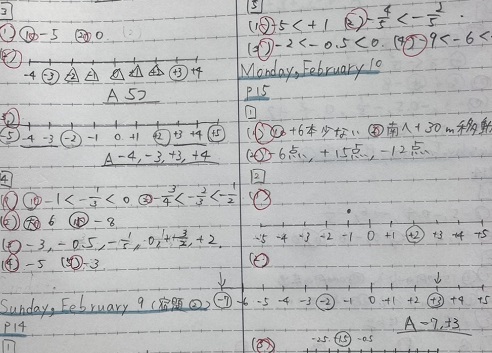 3
(1) ア -5 イ 0
(2)
-4 -3 +3 +4
A 5つ
(3)
-5 -4 -3 -2 -1 0 +1 +2 +3 +4 +5
A -4, -3, +3, +4
4
-1 < -1/3 < 0 -3/4 < -2/3 < -1/2
(2) 6 -8
(3) -3, -0.5, -1/3, 0, +3/2, +2
(4) -5 (5) -3
Sunday, February 9 (宿題②)
P14
1
5
(1) -5 < +1 (2) -4/5 < -2/5
(3) -2 < -0.5 < 0 (4) -9 < -6 <
Monday, February 10
P15
1
(1) +6本少ない 南へ+30m移動
(2) -6点, +15点, -12点
2
(1)
-5 -4 -3 -2 -1 0 +1 +2 +3 +4 +5
(2)
-7 -6 -5 -4 -3 -2 -1 0 +1 +2 +3 +4 +5
A -7, +3
(3)
-2.5 -1.5 -0.5